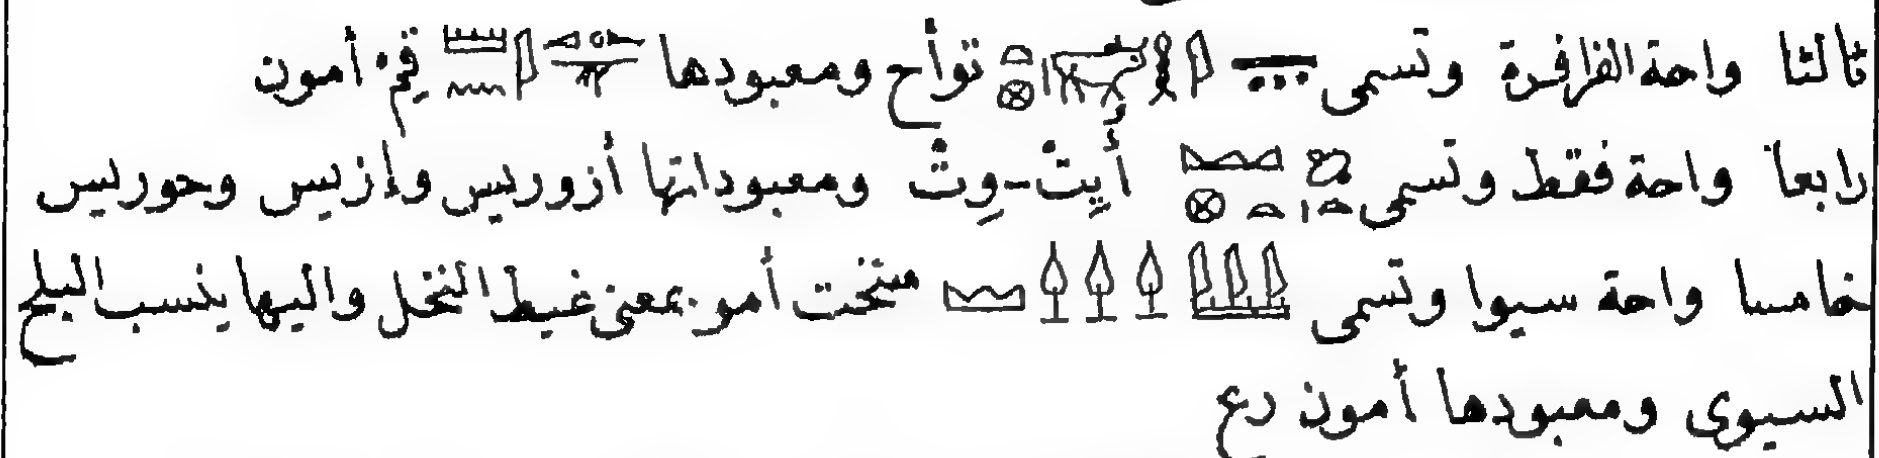 ثالثا واحة الفرافرة وتسمى توأح ومعبودها قم أمون
رابعا واحة فقط وتسمى أَيِتْ-وِتْ ومعبوداتها أزوريس وإزيس وحوريس
خامسا واحة سيوا وتسمى سنخت أمو بمعنى غيط النخل واليها ينسب البلح
السيوى ومعبودها أمون رع